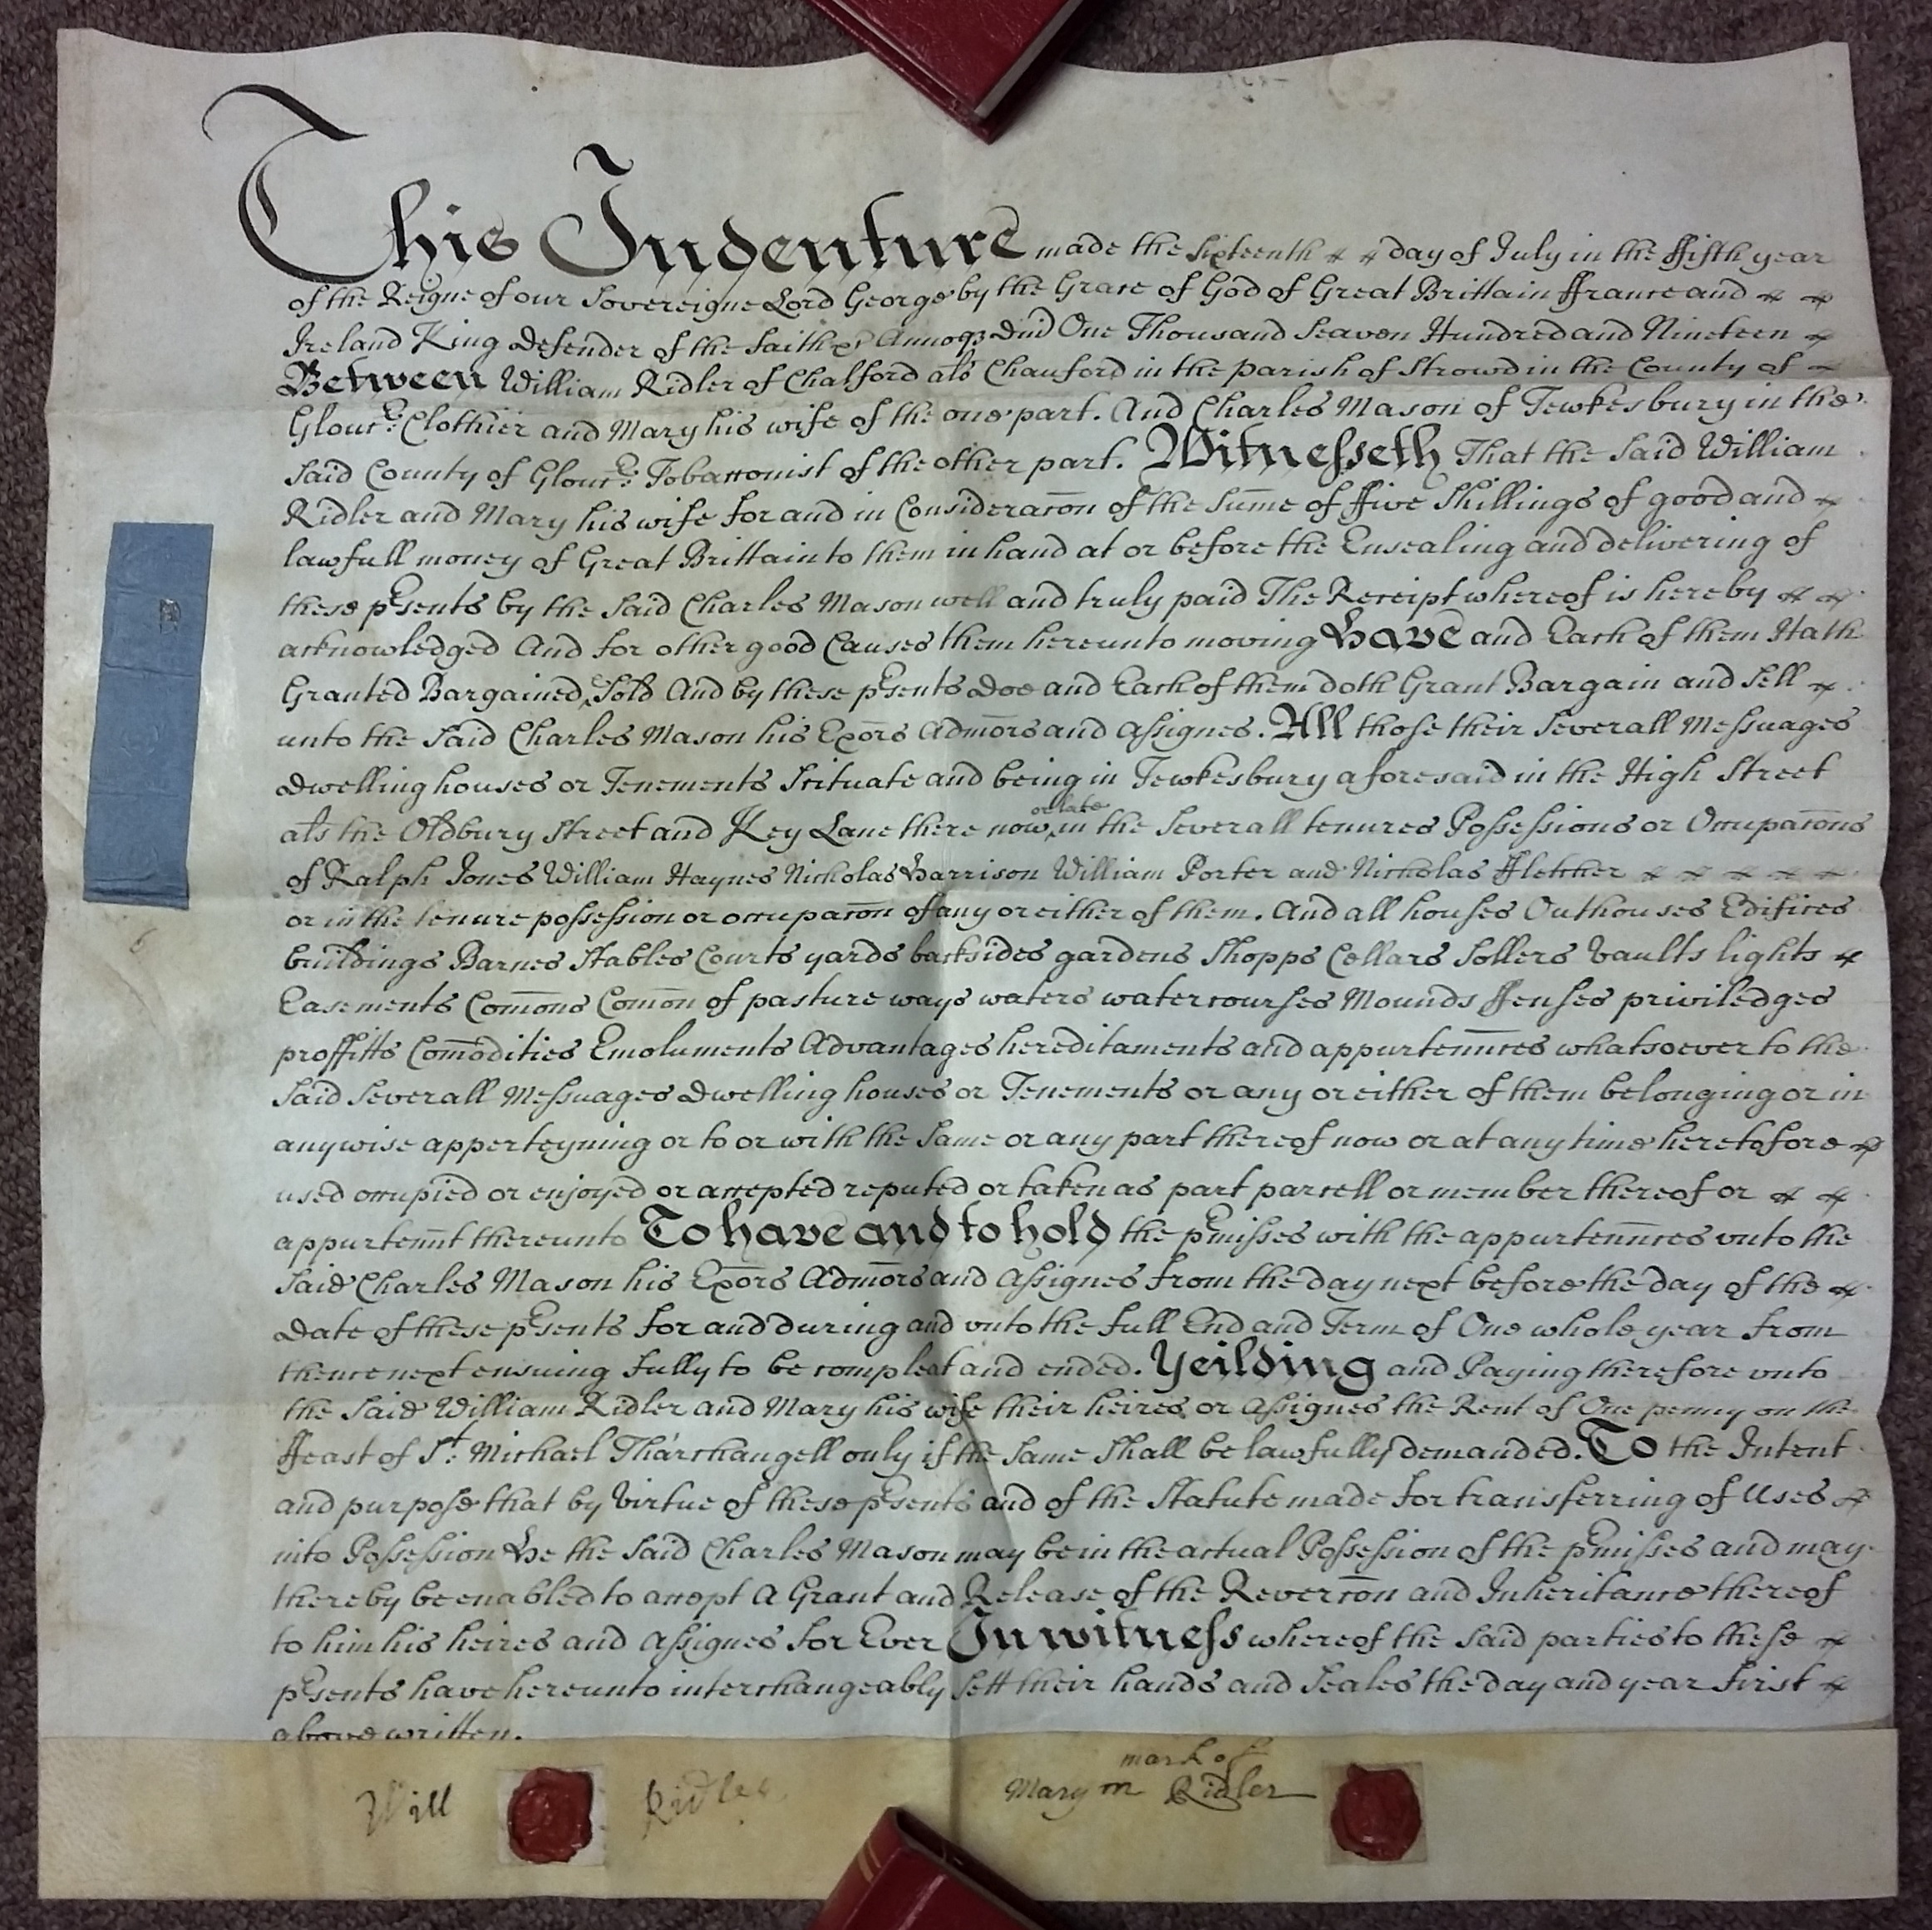 This Indenture made the sixteenth day of July in the ffifth year
of the Reigne of our Sovereigne Lord George by the Grace of God of Great Brittain ffrance and
Ireland King Defender of the faith &c Annoq Dni One Thousand Seaven Hundred and Nineteen
Between William Ridler of Chalford als Chauford in the parish of Strowd in the County of
Glouc:r Clothier and Mary his wife of the one part. And Charles Mason of Tewkesbury in the
said County of Glouc:r Tobacconist of the other part. Witnesseth That the said William
Ridler and Mary his wife for and in Consideracōn of the Sum̄e of ffive Shillings of good and
lawfull money of Great Brittain to them in hand at or before the Ensealing and delivering of
these p̄sents by the said Charles Mason well and truly paid The Receipt whereof is hereby
acknowledged And for other good Causes them hereunto moving Have and Each of them Hath
Granted Bargained & Sold And by these p̄sents Doe and Each of them doth Grant Bargain and Sell
unto the said Charles Mason his Exōrs Adm̄ors and Assignes. All those their severall Messuages
Dwelling houses or Tenements Scituate and being in Tewkesbury aforesaid in the High Street
als the Oldbury Street and Key Lane there now or late in the severall tenures Possessions or Occupacōns
of Ralph Jones William Haynes Nicholas Harrison William Porter and Nicholas ffletcher
or in the tenure possession or occupacōn of any or either of them. And all houses Outhouses Edifices
buildings Barnes Stables Courts yards backsides gardens Shopps Cellars Sollers Vaults lights
Easements Com̄ons Com̄on of pasture ways waters watercourses Mounds ffenses priviledges
proffitts Com̄odities Emoluments Advantages hereditaments and appurten̄nces whatsoever to the
said severall Messuages Dwelling houses or Tenements or any or either of them belonging or in
anywise apperteyning or to or with the same or any part thereof now or at any time heretofore
used occupied or enjoyed or accepted reputed or taken as part parcell or member thereof or
appurten̄nt thereunto To have and to hold the p̄misses with the appurten̄nces vnto the
said Charles Mason his Exōrs Adm̄ors and Assignes from the day next before the day of the
Date of these p̄sents for and during and vnto the full End and Term of One whole year from
thence next ensuing fully to be compleat and ended. Yeilding and Paying therefore vnto
the said William Ridler and Mary his wife their heires or Assignes the Rent of One penny on the
ffeast of St: Michael Th'archangell only if the same shall be lawfully demanded. To the Intent
and purpose that by Virtue of these p̄sents and of the Statute made for transferring of Uses
into Possession He the said Charles Mason may be in the actual Possession of the p̄misses and may
thereby be enabled to accept A Grant and Release of the Revercōn and Inheritance thereof
to him his heires and Assignes for Ever In witness whereof the said parties to these
p̄sents have hereunto interchangeably sett their hands and Seales the day and year first
above written.
Will Ridler
mark of
Mary m Ridler